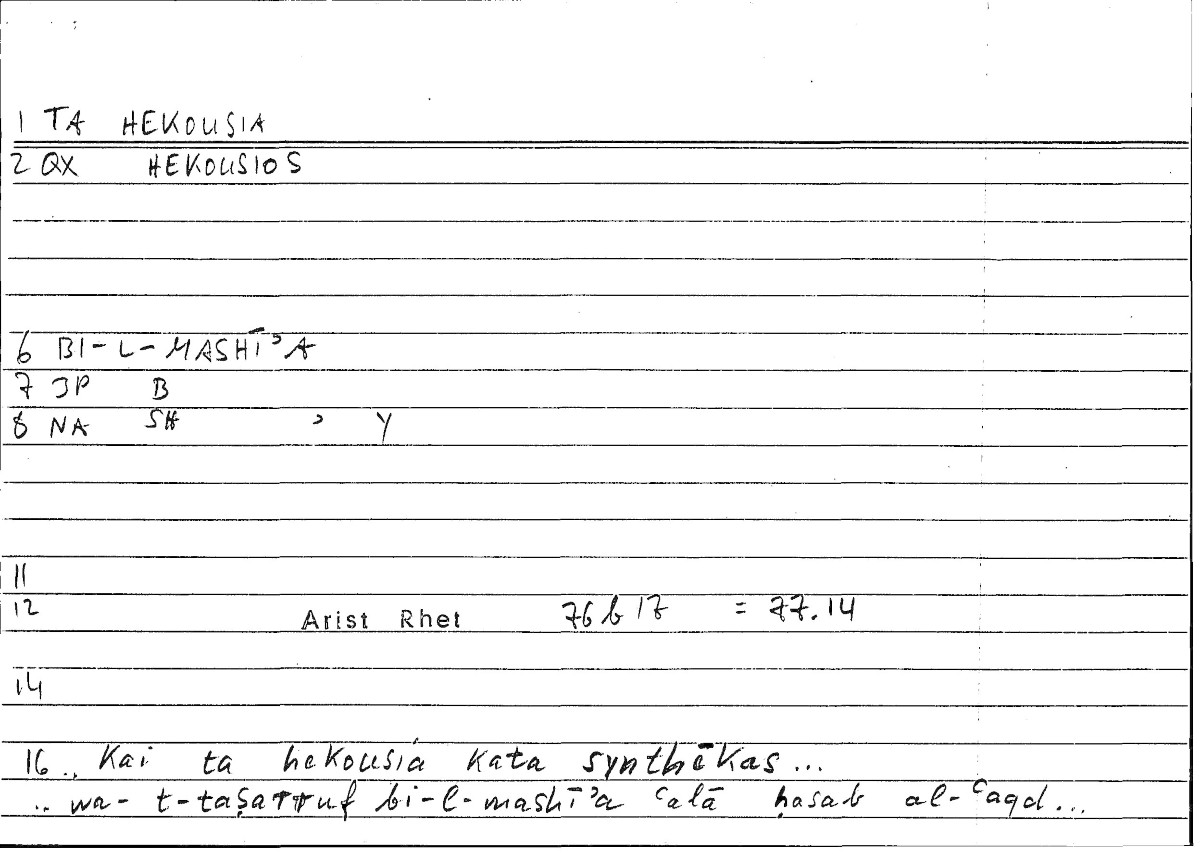 1 TA HEKOUSIA
2 QX HEKOUSIOS
6 BI-L-MASHĪʾA
7 JP B
8 NA SH ʾ Y
11
12 Arist Rhet 76b17 = 77.14
14
16 .. Kai ta hekousia kata synthēkas...
.. wa-t-taṣarruf bi-l-mashīʾa ʿalā ḥasab al-ʿaqd...